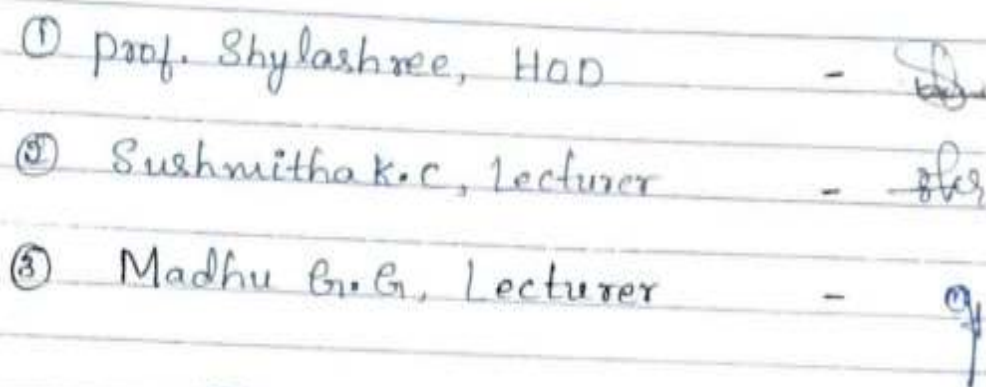 ① Prof. Shylashree, HOD -
② Sushmitha K.C, Lecturer -
③ Madhu G.G, Lecturer -